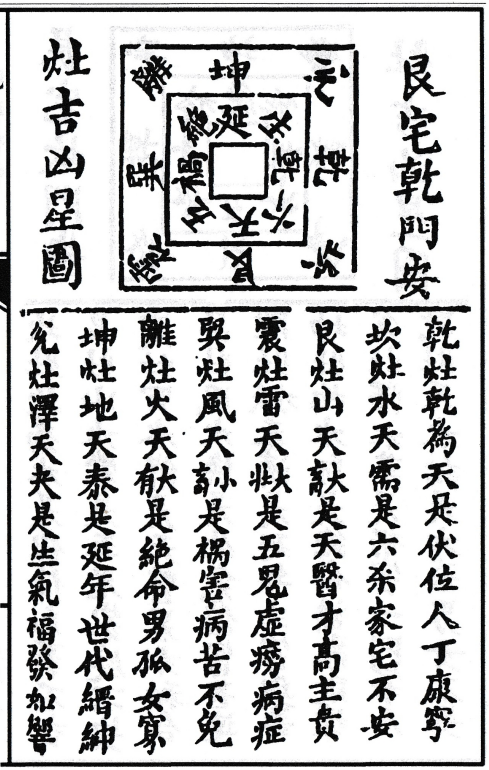 艮宅乾門安
灶吉凶星圖
離 坤 兌
巽 乾
震 艮 坎
絕 延 生
禍 乾
五 天 六
乾灶乾為天是伏位人丁康寧
坎灶水天需是六杀家宅不安
艮灶山天大畜是天醫才高主貴
震灶雷天大壯是五鬼虛癆病症
巽灶風天小畜是禍害病苦不免
離灶火天大有是絕命男孤女寡
坤灶地天泰是延年世代縉紳
兌灶澤天夬是生氣福發如響